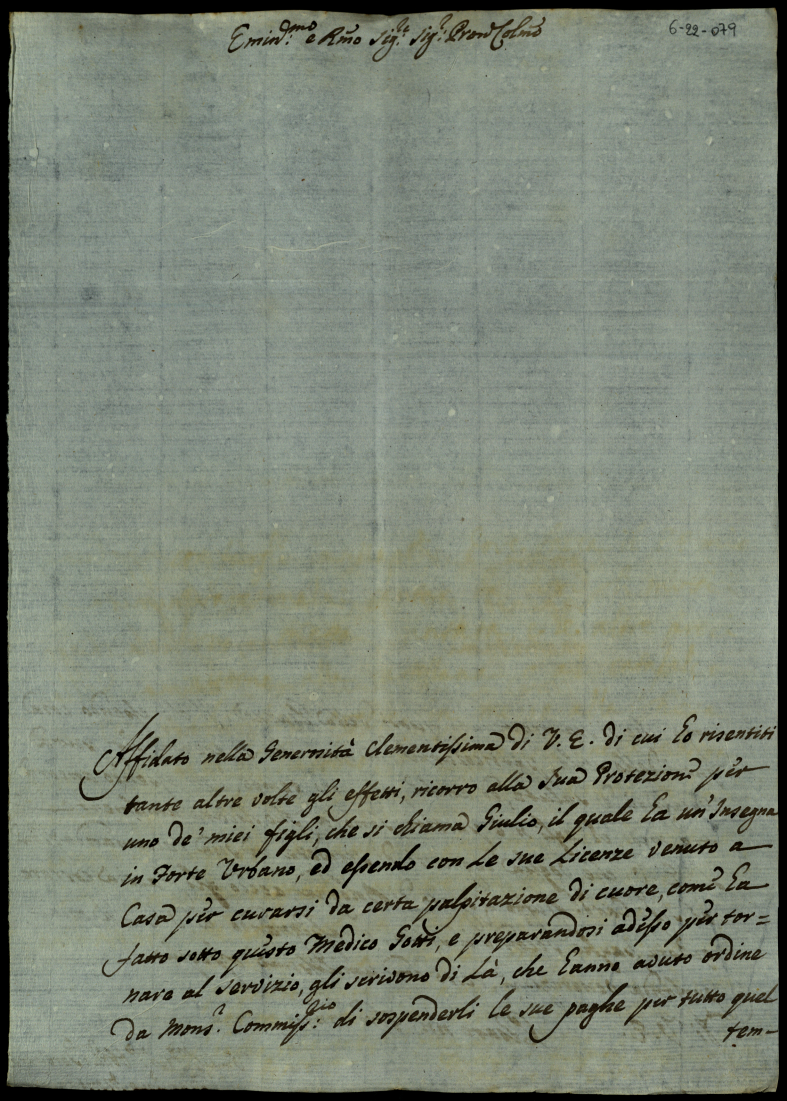 Emin.mo e Rmo Sig.r Sig.r Pron Colmo
6-22-079
Affidato nella Generosità Clementissima di V. E. di cui ho risentiti
tante altre volte gli effetti, ricorro alla Sua Protezione per
uno de' miei figli, che si chiama Giulio, il quale ha un'Insegna
in Forte Urbano, ed essendo con le sue Licenze venuto a
Casa per curarsi da certa palpitazione di cuore, come ha
fatto sotto questo Medico Gotti, e preparandosi adesso per tor=
nare al Servizio, gli scrivono di Là, che hanno avuto ordine
da Mons.r Commiss.rio di sospenderli le sue paghe per tutto quel
tem-